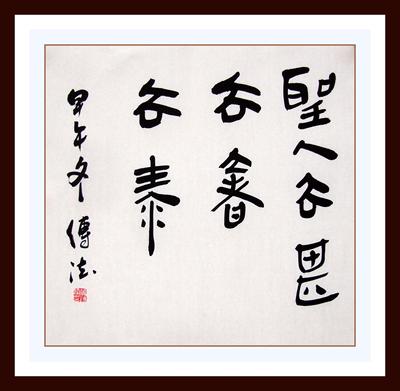 聖人去甚
去奢
去泰
甲午冬傳法